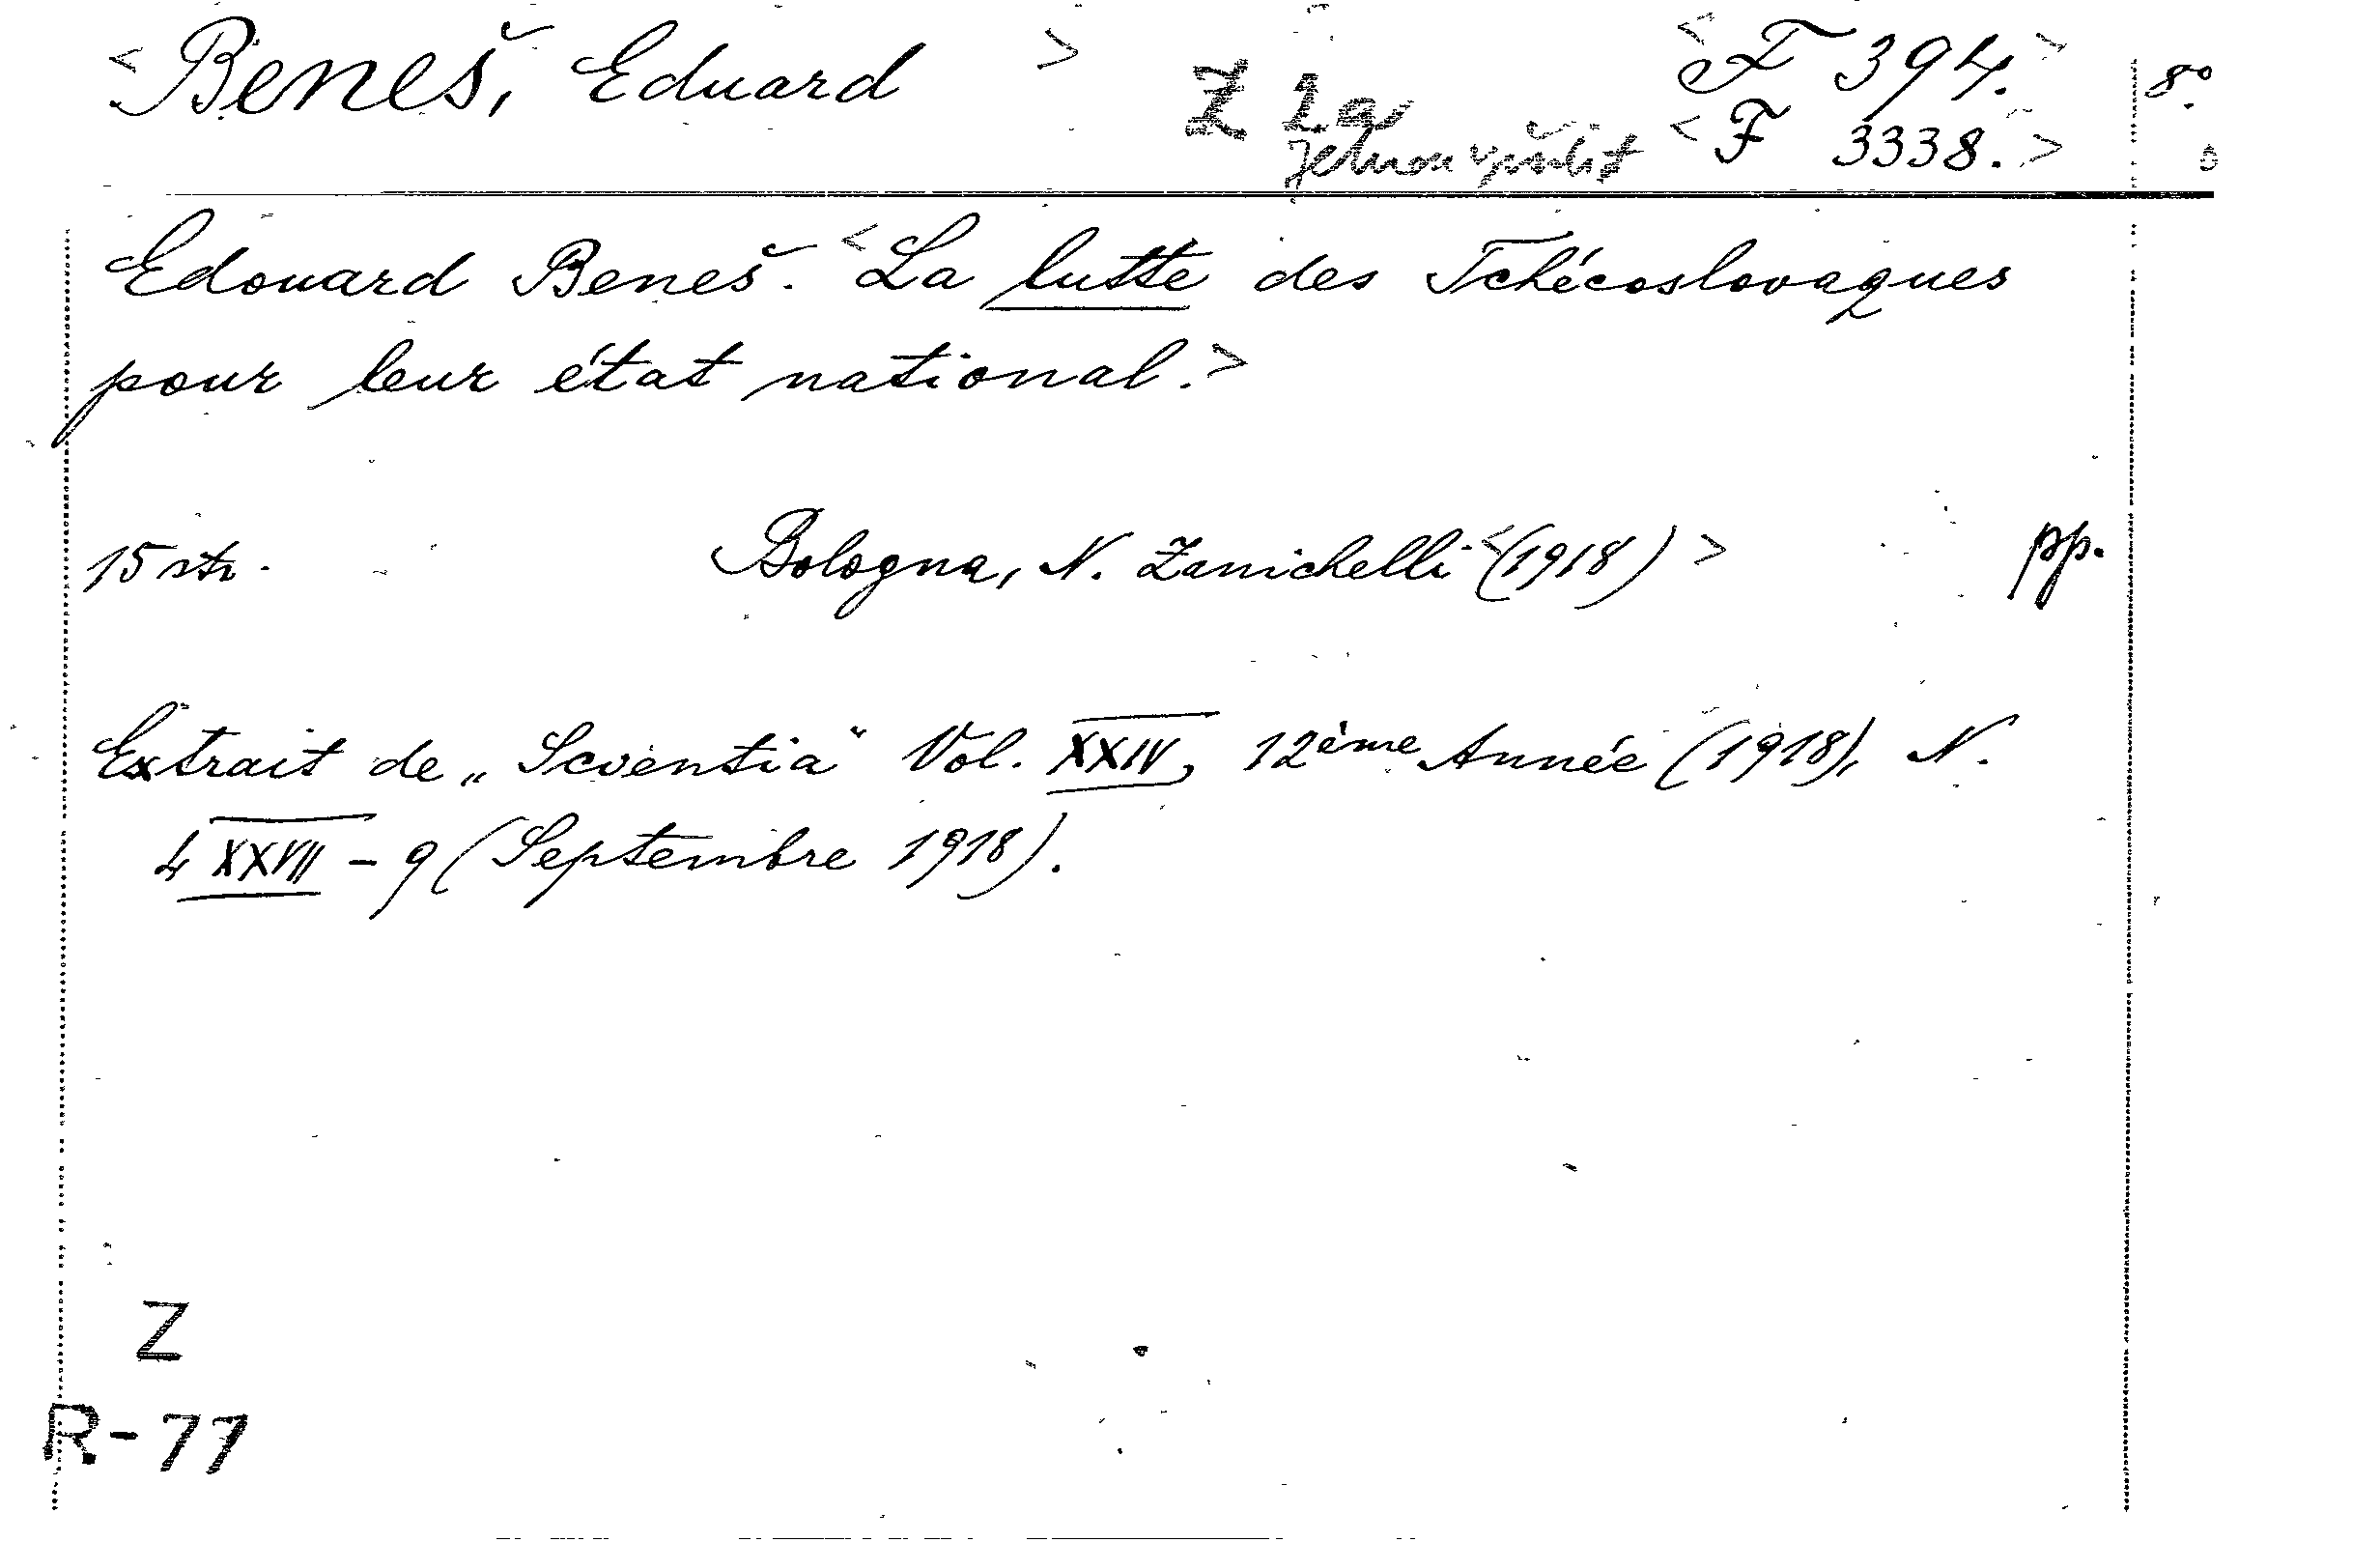 <Beneš, Eduard > Z 2a <F 394.> 8°.
jednou vpšilit <F 3338.>
Edouard Beneš. <La lutte des Tchécoslovaques
pour leur état national.>
15 str. Bologna, N. Zanichelli <(1918)> pp.
Extrait de „Scientia“ Vol. XXIV, 12ème Année (1918), N.
4 XXVII - 9 (Septembre 1918).
Z
R-77